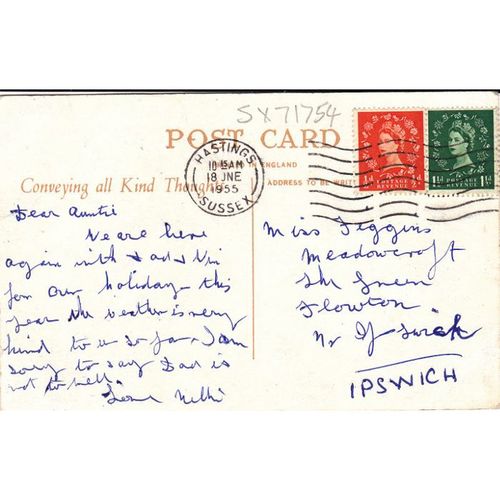 SX71754
POST CARD
PRINTED IN ENGLAND
HASTINGS
10 15AM
18 JNE
1955
SUSSEX
Conveying all Kind Thoughts
ADDRESS TO BE WRIT
½d
POSTAGE REVENUE
1½d
POSTAGE REVENUE
1½d
Dear Auntie
We are here
again with Dad & Viv
for our holiday this
year the weather is very
kind to us so far. I am
sorry to say Dad is
not to well.
Love Nellie
Miss Jeggins
Meadowcroft
The Green
Flowton
Nr Ipswich
IPSWICH